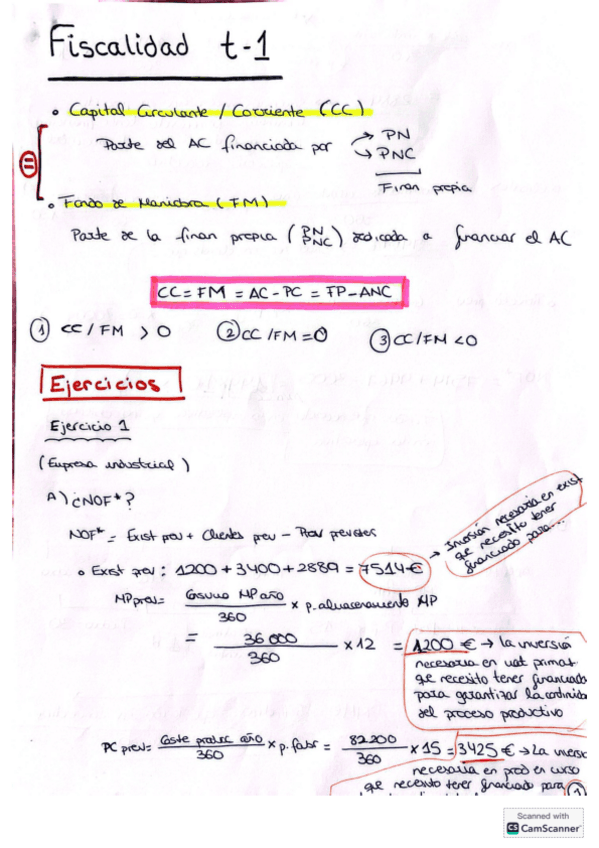 Fiscalidad t-1
• Capital Circulante / Corriente (CC)
Parte del AC financiada por → PN
→ PNC
Finan propia
=
• Fondo de Maniobra (FM)
Parte de la finan propia (PN PNC) dedicada a financiar el AC
CC = FM = AC - PC = FP - ANC
① CC / FM > 0 ② CC / FM = 0 ③ CC / FM < 0
Ejercicios
Ejercicio 1
(Empresa industrial)
A) ¿NOF*?
NOF* = Exist prev + Clientes prev - Prov previstos
→ Inversión necesaria en exist
que necesito tener
financiado para...
• Exist prev: 1200 + 3400 + 2889 = 7514 €
MP prev = Consumo MP año / 360 x p. almacenamiento MP
= 36 000 / 360 x 12 = 1200 € → la inversión
necesaria en mat primas
que necesito tener financiada
para garantizar la continuida
del proceso productivo
PC prev = Coste produc año / 360 x p. fabr = 82200 / 360 x 15 = 3425 € → La inversi
necesaria en prod en curso
que necesito tener financiado para
Scanned with
CS CamScanner